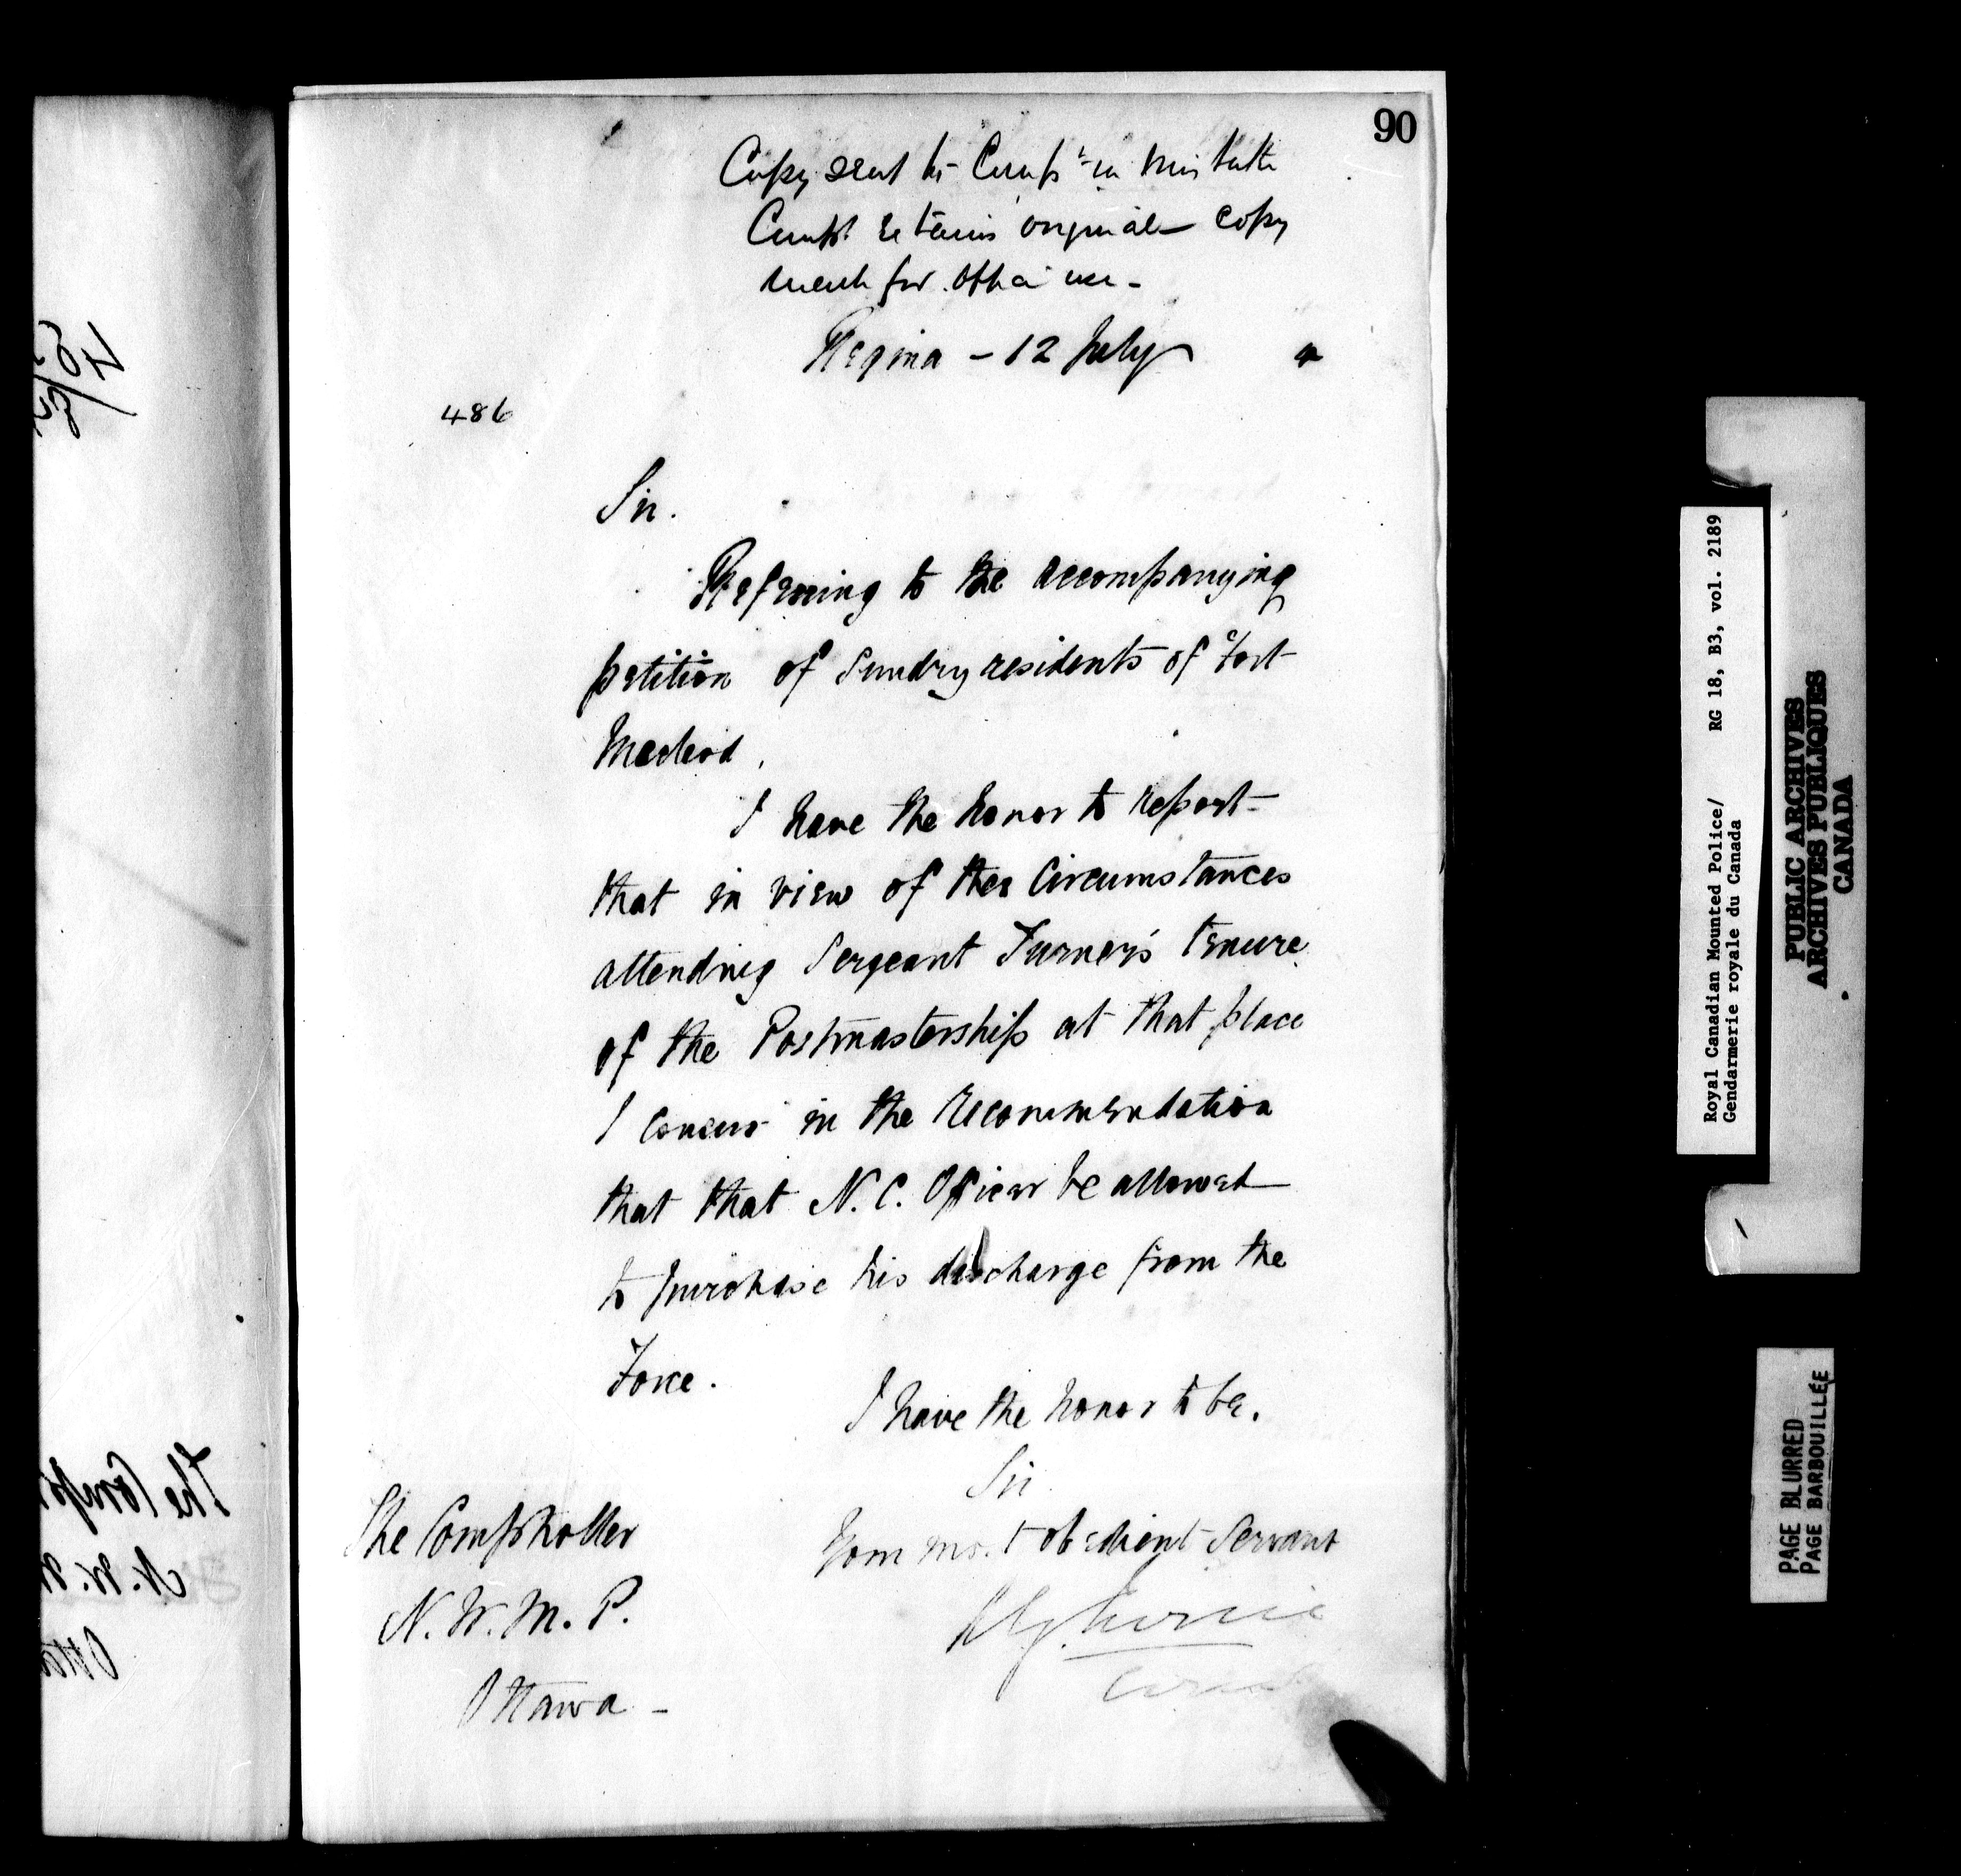 90
Copy sent to Compt in mistake
Compt retains original copy
made for office use -
Regina - 12 July
486
Sir.
Referring to the accompanying
petition of sundry residents of Fort
Macleod,
I have the honor to report
that in view of the Circumstances
attending Sergeant Turner's tenure
of the Postmastership at that place
I concur in the recommendation
that that N. C. Officer be allowed
to purchase his discharge from the
Force.
I have the honor to be.
Sir
Your most obedient Servant
The Comptroller
N. W. M. P.
Ottawa -
Royal Canadian Mounted Police/ RG 18, B3, vol. 2189
Gendarmerie royale du Canada
PUBLIC ARCHIVES
ARCHIVES PUBLIQUES
CANADA
PAGE BLURRED
PAGE BARBOUILLÉE